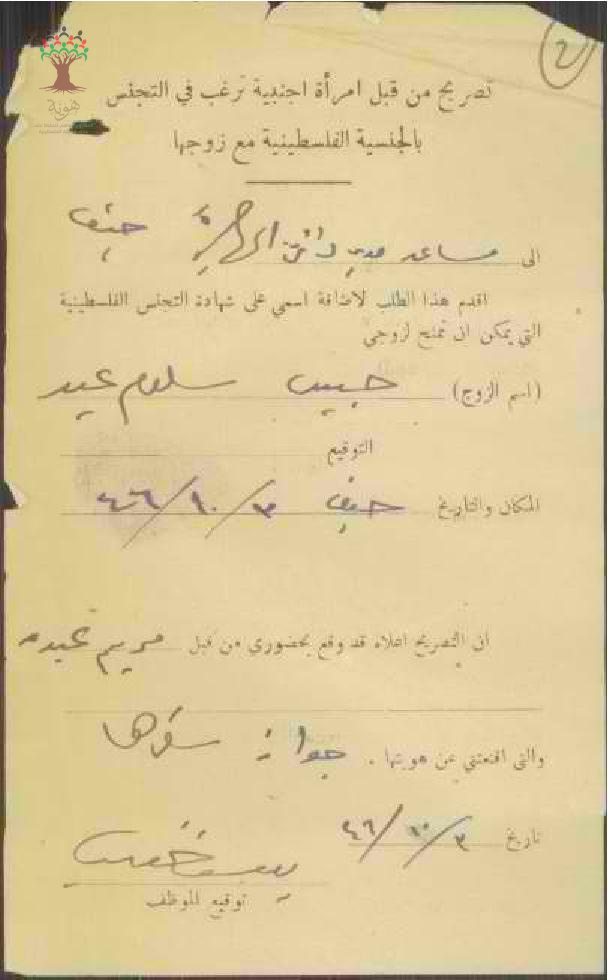 هوية
٢
تصريح من قبل امرأة اجنبية ترغب في التجنس
بالجنسية الفلسطينية مع زوجها
الى مساعد مدير دائرة المهاجرة حيفا
اقدم هذا الطلب لاضافة اسمي على شهادة التجنس الفلسطينية
التي يمكن ان تمنح لزوجي
(اسم الزوج) حبيب سلوم عيد
التوقيع
المكان والتاريخ حيفا ٣/١٠/٤٦
ان التصريح اعلاه قد وقع بحضوري من قبل مريم عبده
والتي اقنعتني عن هويتها . جواز سفرها
تاريخ ٣/١٠/٤٦
توقيع الموظف